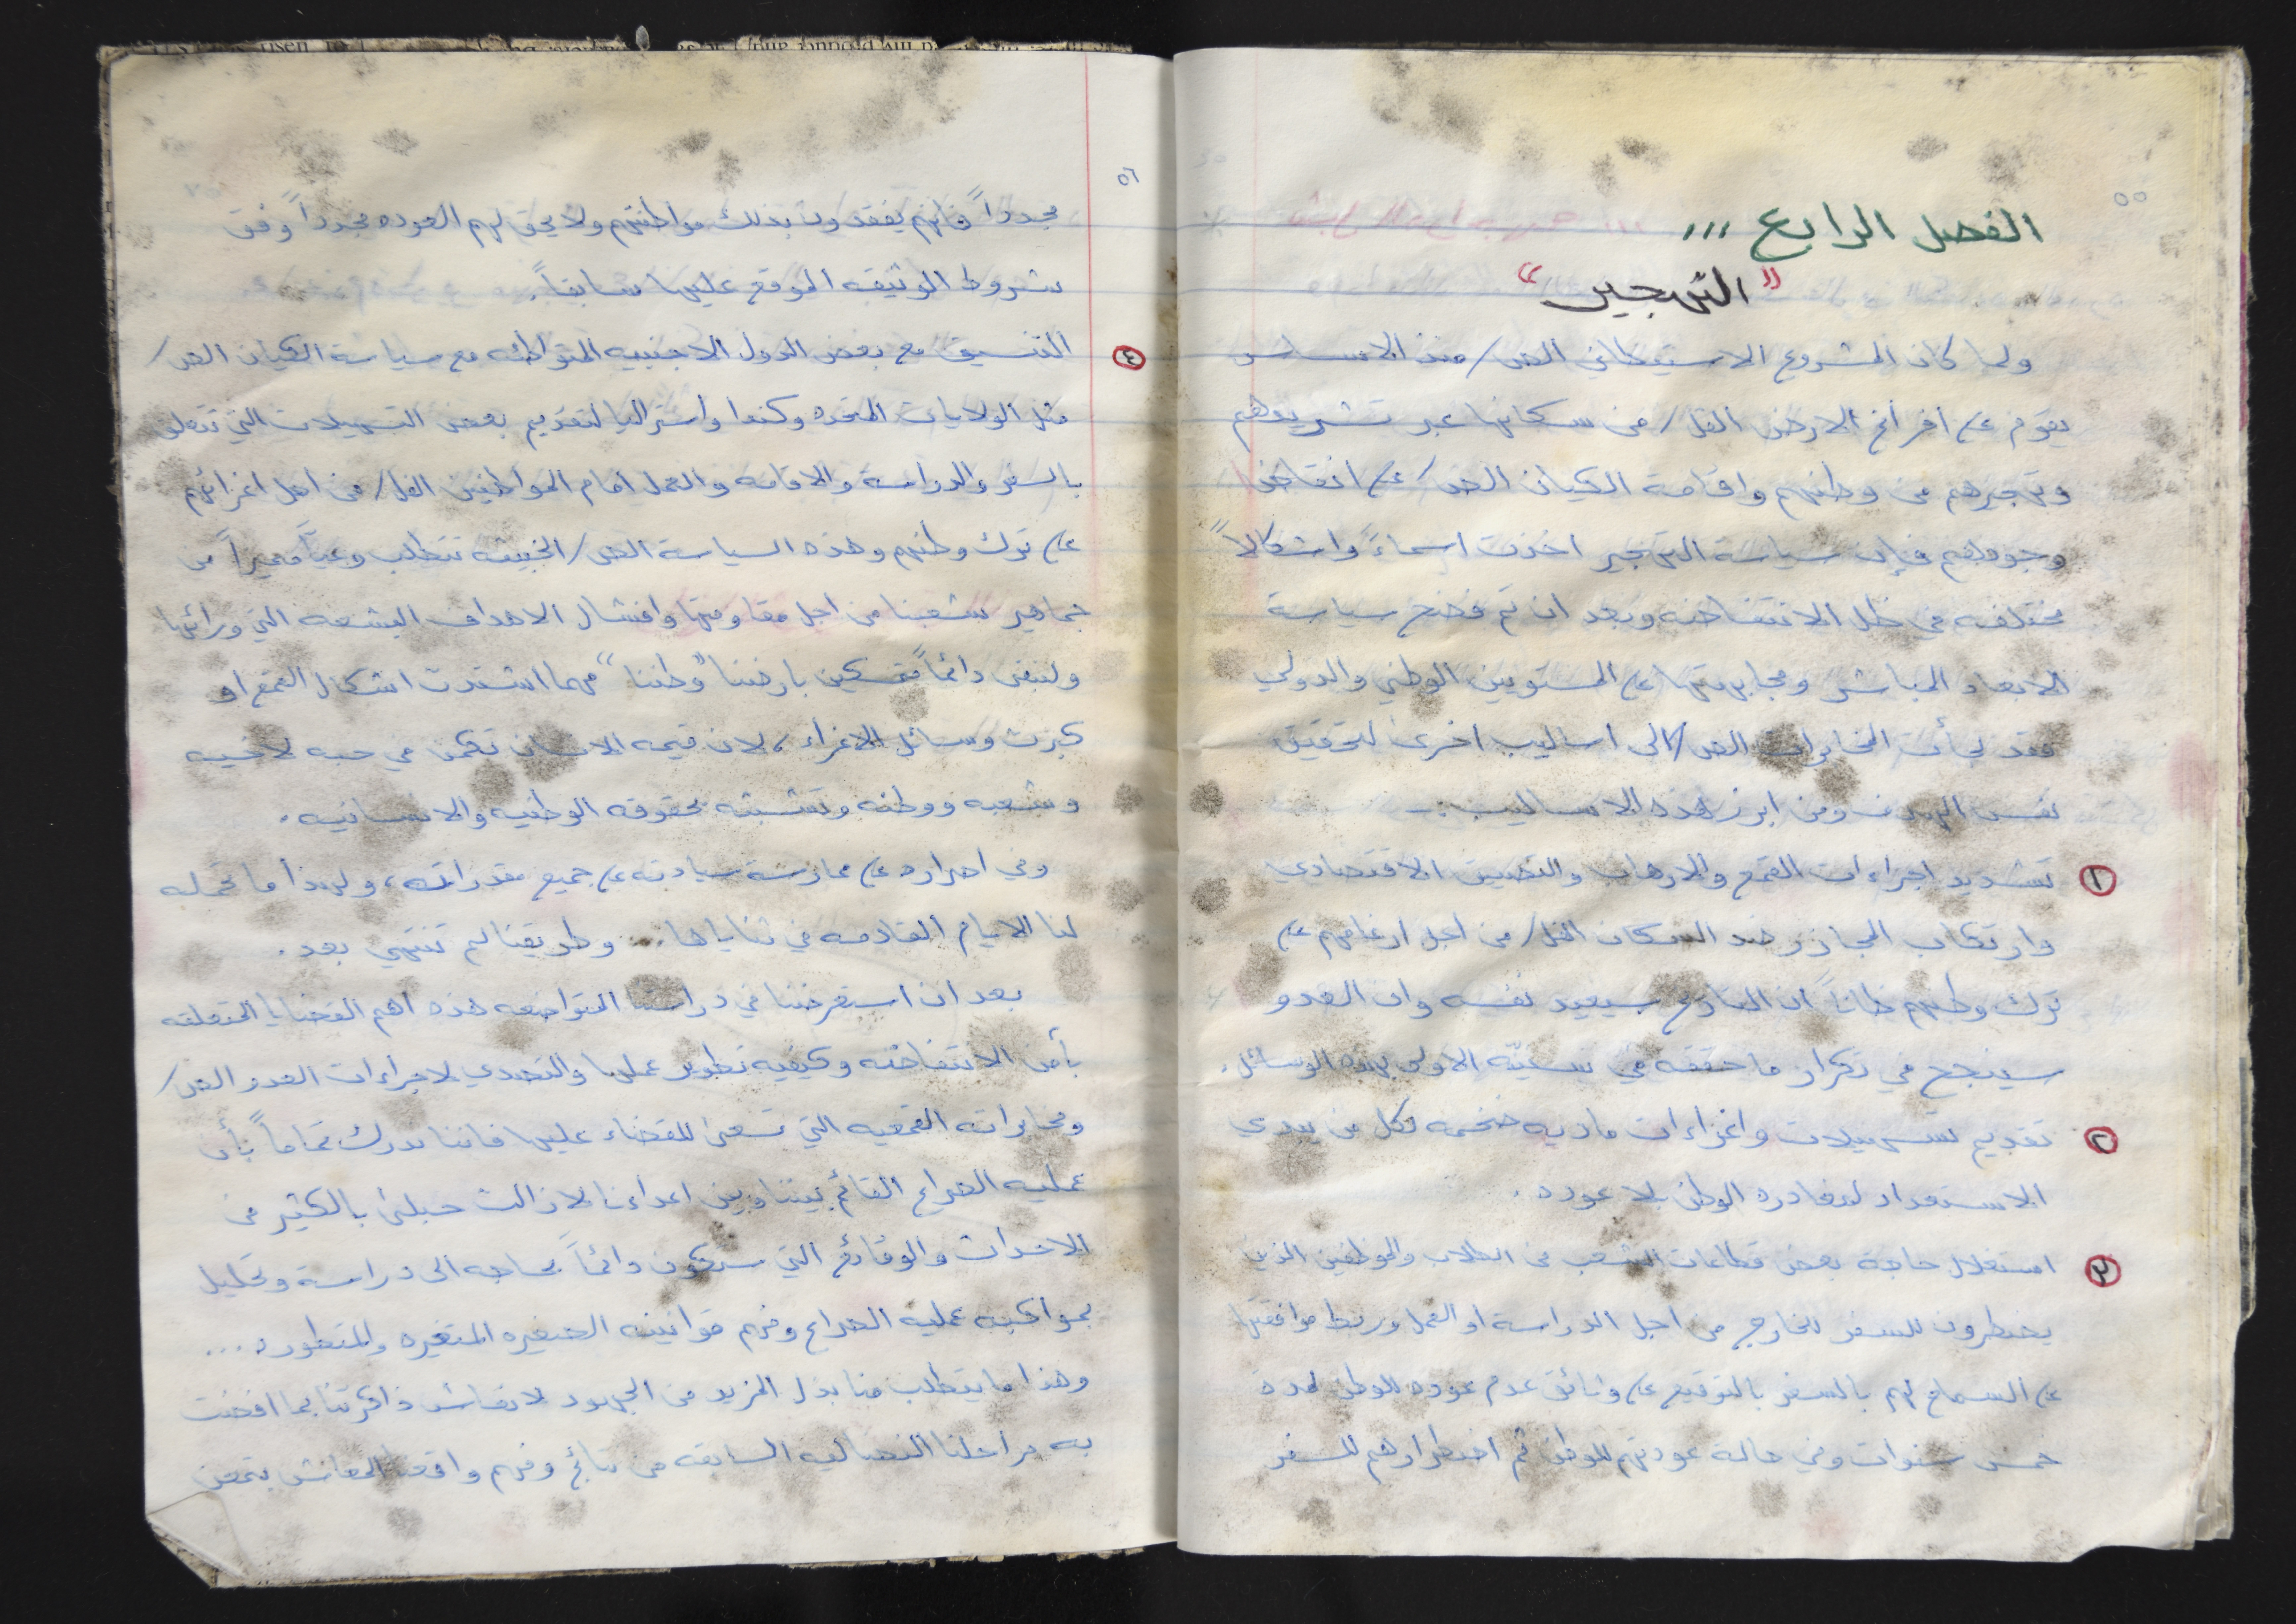 ٥٥
الفصل الرابع ...
"التهجير"
ولما كان المشروع الاستيطاني الص/ منذ الاساس
يقوم على افراغ الارض الفل/ من سكانها عبر تشريدهم
وتهجيرهم من وطنهم واقامة الكيان الص/ على انقاض
وجودهم فإن سياسة التهجير اخذت اسماءً واشكالاً
مختلفه في ظل الانتفاضه وبعد ان تم فضح سياسة
الابعاد المباشر ومجابهتها على المستويين الوطني والدولي
فقد لجأت المخابرات الص/ الى اساليب اخرى لتحقيق
نفس الهدف ومن ابرز هذه الاساليب :-
١ تشديد اجراءات القمع والارهاب والتضييق الاقتصادي
وارتكاب المجازر ضد السكان الفل/ من اجل ارغامهم على
ترك وطنهم ظاناً ان التاريخ سيعيد نفسه وان العدو
سينجح في تكرار ما حققه في سنيّه الاولى بهذه الوسائل.
٢ تقديم تسهيلات واغراءات ماديه ضخمه لكل من يبدي
الاستعداد لمغادره الوطن بلا عوده .
٣ استغلال حاجة بعض قطاعات الشعب من الطلاب والموظفين الذين
يضطرون للسفر للخارج من اجل الدراسة او العمل وربط موافقتها
على السماح لهم بالسفر بالتوقيع على وثائق عدم عوده للوطن لمدة
خمس سنوات وفي حاله عودتهم للوطن ثم اضطرارهم للسفر
٥٦
مجدداً فانهم يفقدون بذلك مواطنتهم ولا يحق لهم العوده مجدداً وفق
شروط الوثيقه الموقع عليها سابقاً.
٤ التنسيق مع بعض الدول الاجنبيه المتواطئه مع سياسة الكيان الص/
مثل الولايات المتحده وكندا واستراليا لتقديم بعض التسهيلات التي تتعلق
بالسفر والدراسة والاقامه والعمل امام المواطنين الفل/ من اجل اغرائهم
على ترك وطنهم وهذه السياسة الص/ الخبيثه تتطلب وعياً مميزاً من
جماهير شعبنا من اجل مقاومتها وافشال الاهداف البشعه التي ورائها
ولنبقى دائماً متمسكين بارضنا "وطننا" مهما اشتدت اشكال القمع او
كبرت وسائل الاغراء ، لان قيمه الانسان تكمن في حبه لاخيه
وشعبه ووطنه وتشبثه بحقوقه الوطنيه والانسانيه .
وفي اصراره على ممارسة سيادته على جميع مقدراته، ولهذا ما تحمله
لنا الايام القادمه في ثناياها... وطريقنا لم تنتهي بعد .
بعد ان استعرضنا في دراستنا المتواضعه هذه اهم القضايا المتعلقه
بأمن الانتفاضه وكيفيه تطوير عملها والتصدي لاجراءات العدو الص/
ومخابراته القمعيه التي تسعى للقضاء عليها فاننا ندرك تماماً بأن
عمليه الصراع القائم بيننا وبين اعداءنا لا زالت حبلى بالكثير من
الاحداث والوقائع التي ستكون دائماً بحاجه الى دراسة وتحليل
بمواكبه عمليه الصراع وفهم قوانينه المتغيره والمتطوره ...
وهذا ما يتطلب منا بذل المزيد من الجهود لانعاش ذاكرتنا بما افضت
به مراحلنا النضاليه السابقه من نتائج وفهم واقعنا المعاش بتمعن